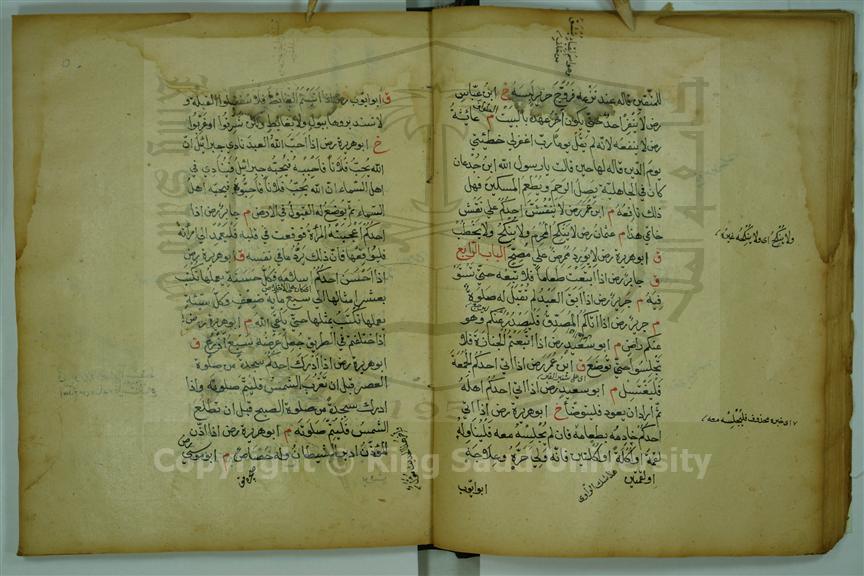 للمتقين قاله عند نزعه فروج حرير لبسه خ ابن عباس
رض لا ينفر احد حتى يكون آخر عهده بالبيت م عائشة
رض لا ينفعه لانه لم يقل يوما رب اغفر لي خطيئتي
يوم الدين قاله لها حين قالت يا رسول الله ابن جدعان
كان في الجاهلية يصل الرحم ويطعم المسكين فهل
ذلك نافعه م ابن عمر رض لا ينقش احدكم على نقش
خاتمي هذا م عثمان رض لا ينكح المحرم ولا ينكح ولا يخطب
ق ابو هريرة رض لا يورد ممرض على مصح الباب الرابع
ق جابر رض اذا ابتعت طعاما فلا تبعه حتى تستوفيه
م جرير رض اذا ابق العبد لم تقبل له صلوة
م جرير رض اذا اتاكم المصدق فليصدر عنكم وهو
عنكم راض م ابو سعيد رض اذا اتبعتم الجنازة فلا
تجلسوا حتى توضع ق ابن عمر رض اذا اتى احدكم الجمعة
فليغتسل م ابو سعيد رض اذا اتى احدكم اهله
ثم اراد ان يعود فليتوضأ خ ابو هريرة رض اذا اتى
احدكم خادمه بطعامه فان لم يجلسه معه فليناوله
لقمة او اكلة او اكلتين فانه ولي حره وعلاجه
او لقمتين
هذا شك الراوي
ابو ايوب
ق ابو ايوب رض اذا اتيتم الغائط فلا تستقبلوا القبلة و
لا تستدبروها ببول ولا بغائط ولكن شرقوا او غربوا
خ ابو هريرة رض اذا احب الله العبد نادى جبرائيل ان
الله يحب فلانا فاحببه فيحبه جبرائيل فينادي في
اهل السماء ان الله يحب فلانا فاحبوه فيحبه اهل
السماء ثم يوضع له القبول في الارض م جابر رض اذا
احدكم اعجبته المرأة فوقعت في قلبه فليعمد الى امرأته
فليواقعها فان ذلك يرد ما في نفسه ق ابو هريرة رض
اذا احسن احدكم اسلامه فكل حسنة يعملها تكتب
بعشر امثالها الى سبع مائة ضعف وكل سيئة
يعملها تكتب بمثلها حتى يلقى الله م ابو هريرة رض
اذا اختلفتم في الطريق جعل عرضه سبع اذرع ق
ابو هريرة رض اذا ادرك احدكم سجدة من صلوة
العصر قبل ان تغرب الشمس فليتم صلوته واذا
ادرك سجدة من صلوة الصبح قبل ان تطلع
الشمس فليتم صلوته م ابو هريرة رض اذا اذن
المؤذن ادبر الشيطان وله حصاص م ابو موسى
Copyright © King Saud University